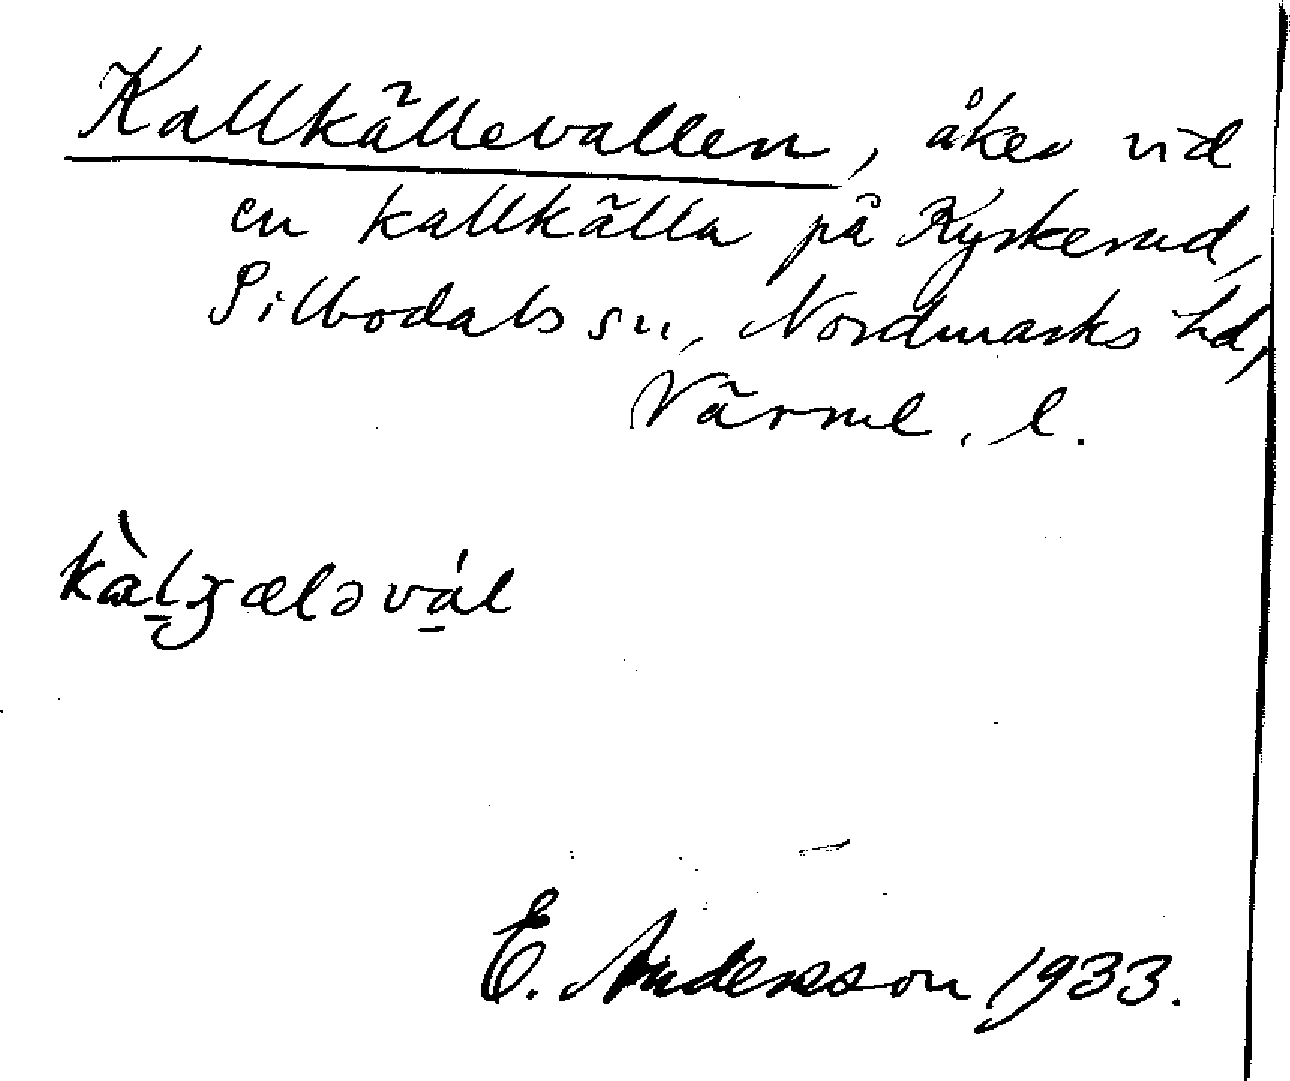 Kallkällevallen, åker vid
en kallkälla på Kyrkerud,
Silbodals sn, Nordmarks hd,
Värml. l.
kàlɣæləvál
E. Andersson 1933.